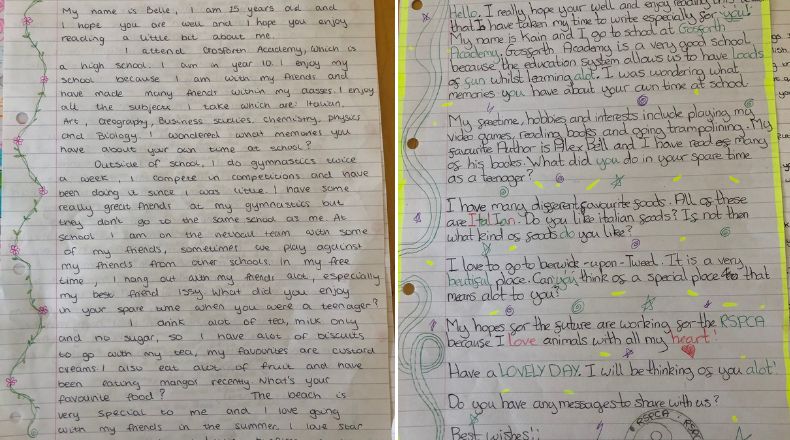 My name is Belle, I am 15 years old and
I hope you are well and I hope you enjoy
reading a little bit about me.
I attend Gosforth Academy, which is
a high school. I am in year 10. I enjoy my
school because I am with my friends and
have made many friends within my classes. I enjoy
all the subjects I take which are: Italian,
Art, Geography, Business studies, Chemistry, Physics
and Biology. I wondered what memories you
have about your own time at school?
Outside of school, I do gymnastics twice
a week, I compete in competitions and have
been doing it since I was little. I have some
really great friends at my gymnastics but
they don't go to the same school as me. At
school I am on the netball team with some
of my friends, sometimes we play against
my friends from other schools. In my free
time, I hang out with my friends alot, especially
my best friend Issy. What did you enjoy
in your spare time when you were a teenager?
I drink alot of tea, milk only
and no sugar, so I have alot of biscuits
to go with my tea, my favourites are custard
creams. I also eat alot of fruit and have
been eating mangos recently. What's your
favourite food? The beach is
very special to me and I love going
with my friends in the summer. I love star
Hello, I really hope your well and enjoy reading this
that I have taken my time to write especially for you!
My name is Kain and I go to school at Gosforth
Academy. Gosforth Academy is a very good school
because the education system allows us to have loads
of fun whilst learning alot. I was wondering what
memories you have about your own time at school.
My freetime, hobbies and interests include playing my
video games, reading books and going trampolining. My
favourite Author is Alex Bill and I have read many
of his books. What did you do in your spare time
as a teenager?
I have many different favourite foods. All of these
are Italian. Do you like italian foods? If not then
what kind of foods do you like?
I love to go to berwick-upon-Tweed. It is a very
beutiful place. Can you think of a special place that
means alot to you?
My hopes for the future are working for the RSPCA
because I love animals with all my heart!
Have a LOVELY DAY. I will be thinking of you alot!
Do you have any messages to share with us?
Best wishes!!
RSPCA RSP